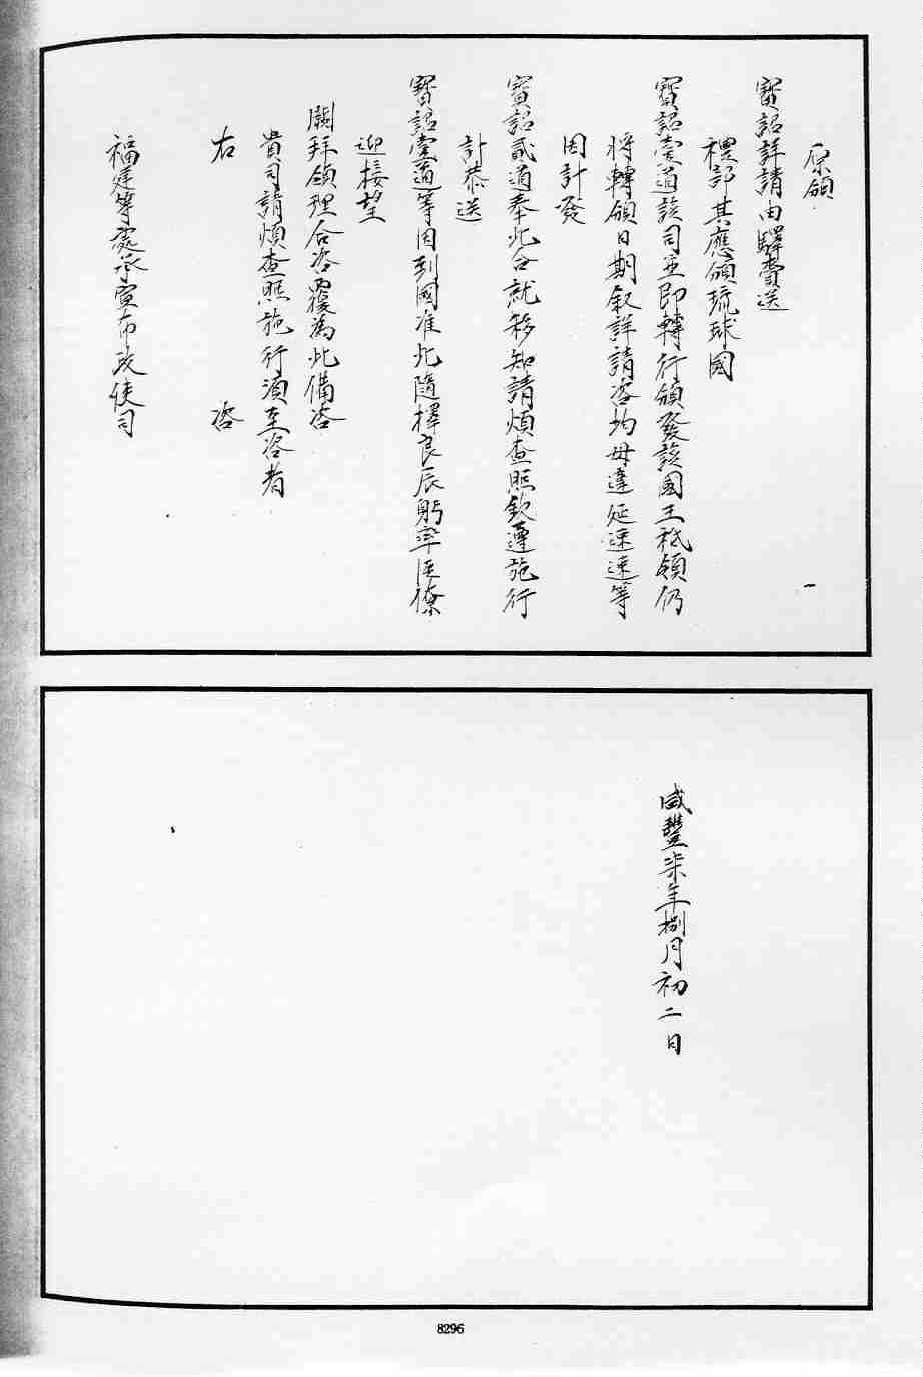 原領
寶詔詳請由驛賫送
禮部其應頒琉球國
寶詔壹道該司亟即轉行頒發該國王祗領仍
將轉領日期叙詳請咨均毋違延速速等
因計發
寶詔貳道奉此合就移知請煩查照欽遵施行
計恭送
寶詔壹道等因到國准此隨擇良辰躬率臣僚
迎接望
闕拜領理合咨覆為此備咨
貴司請煩查照施行須至咨者
右 咨
福建等處承宣布政使司
咸豐柒年捌月初二日
8296